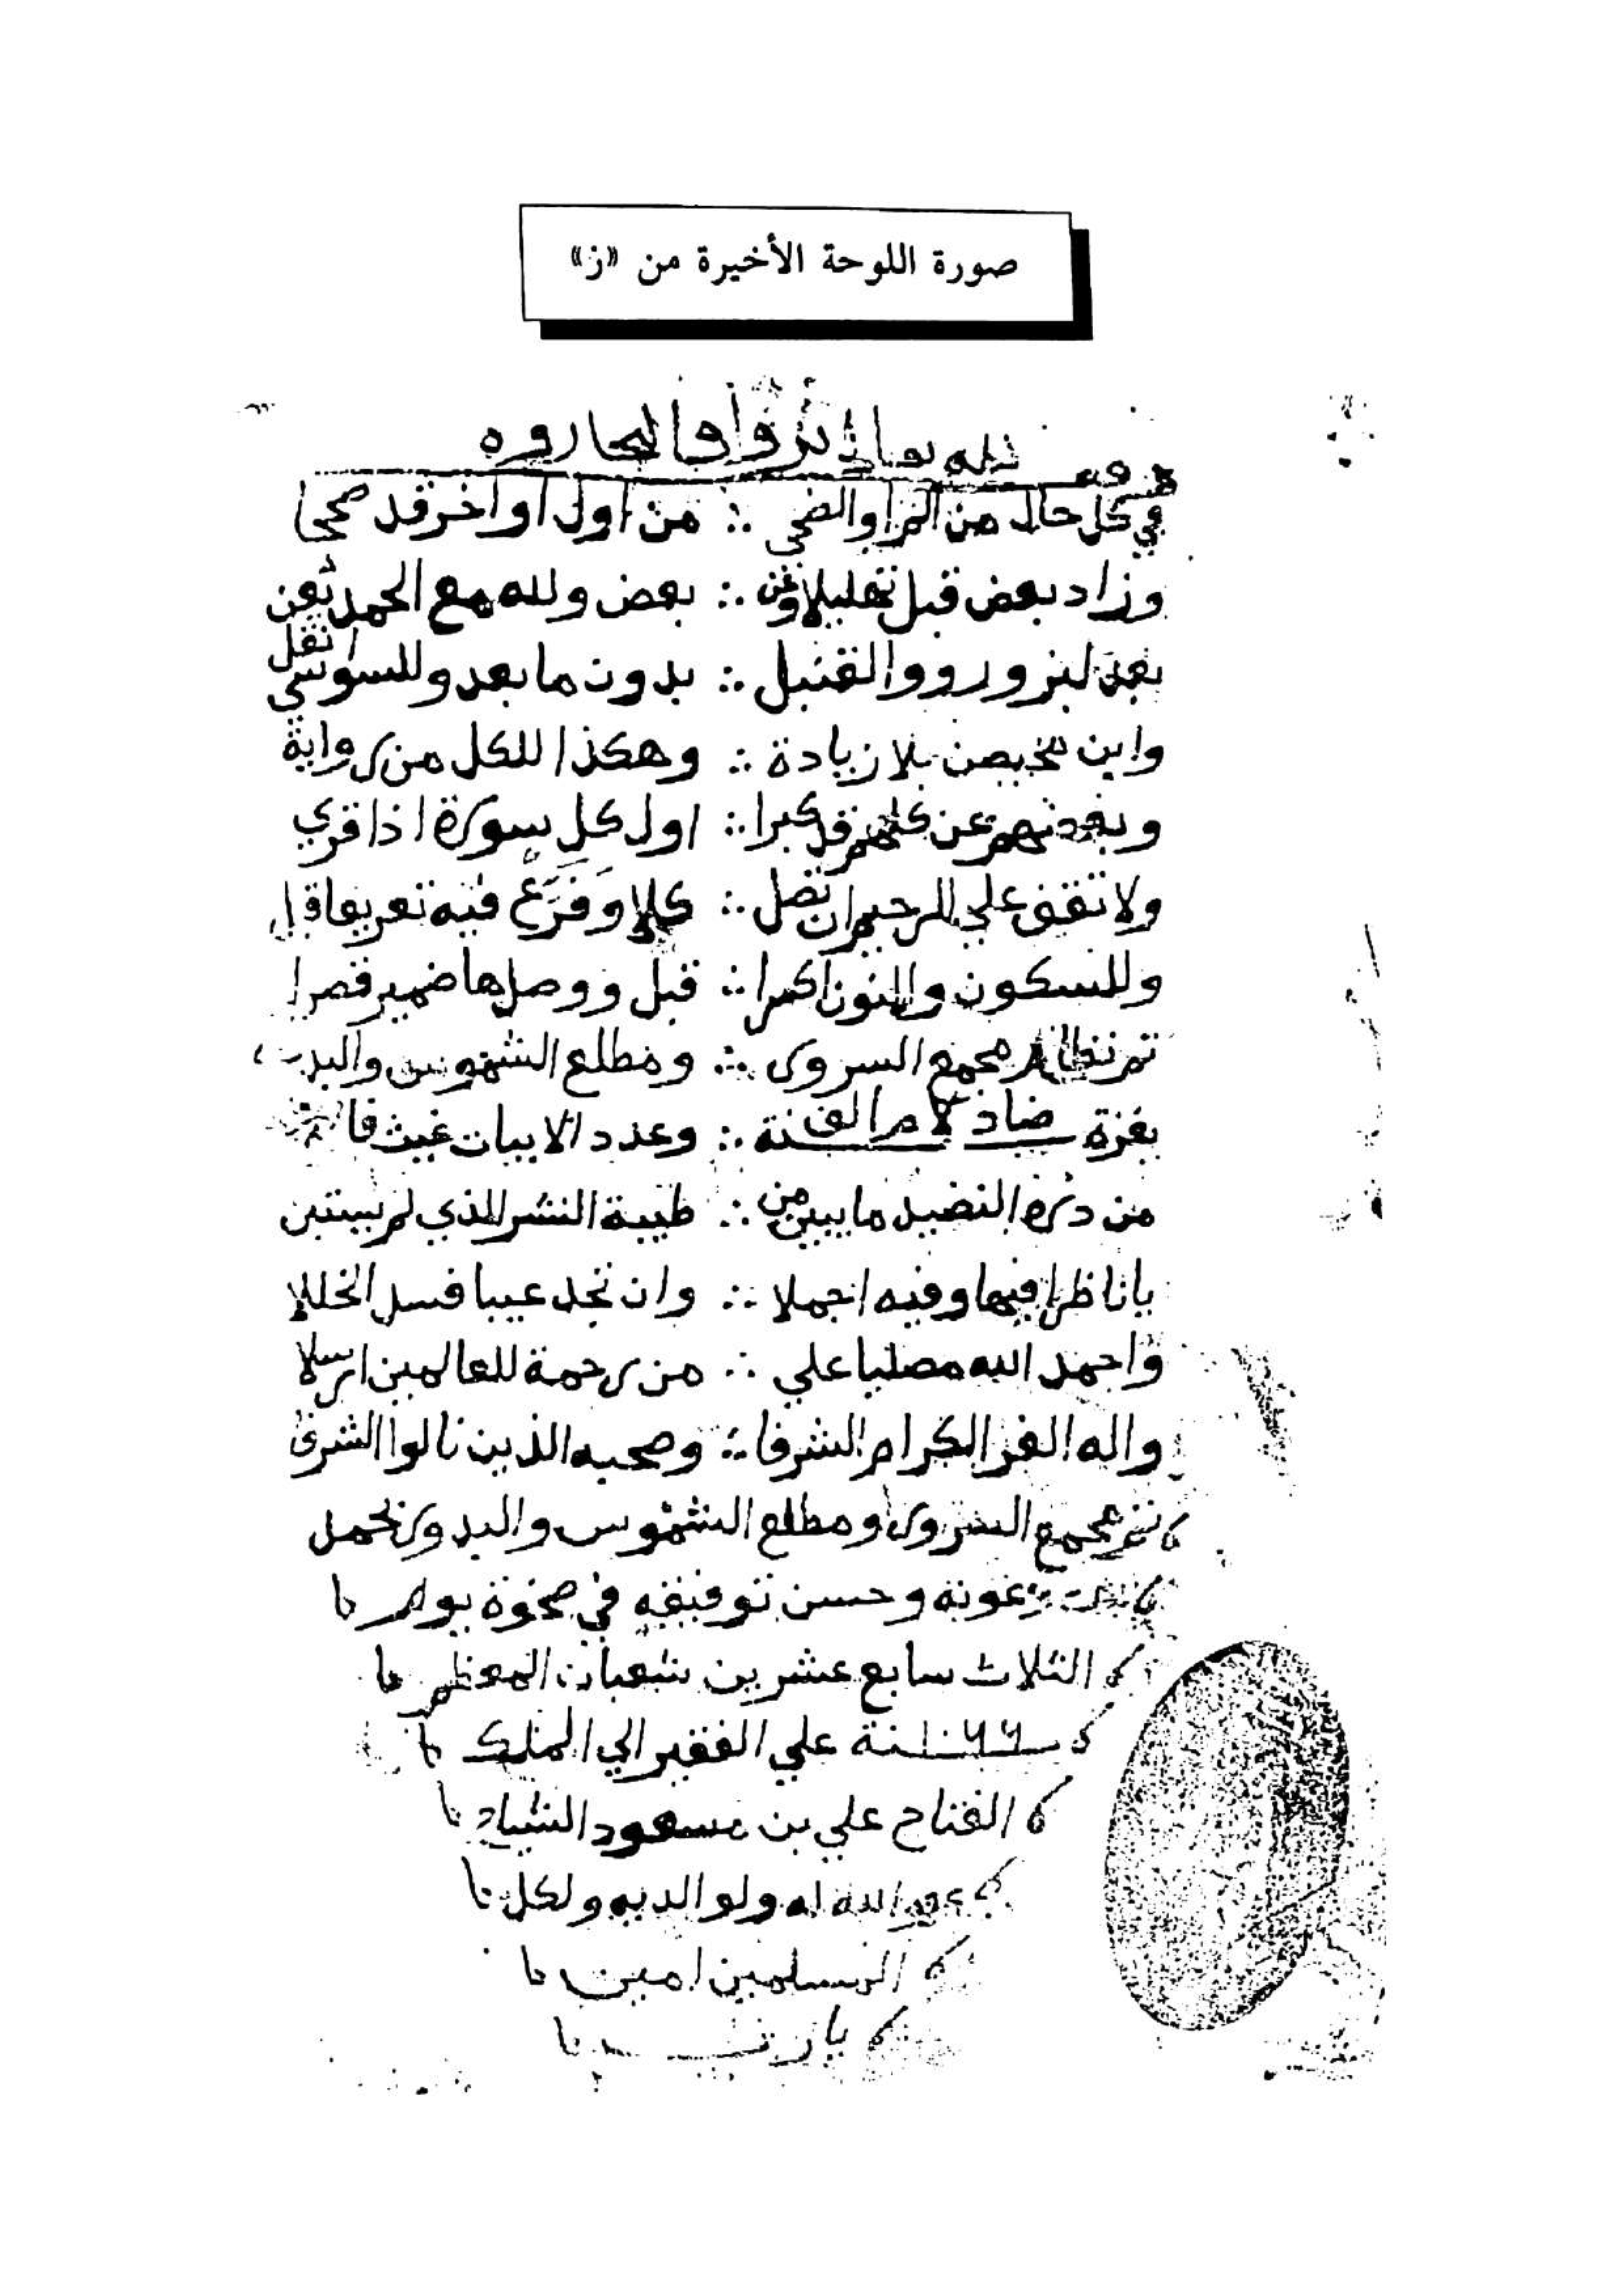 صورة اللوحة الأخيرة من «ز»
في كل حال من الم او الضحي ∴ من اول او اخر قد صححا
وزاد بعض قبل تهليلا وعن ∴ بعض ولله مع الحمد يعن
بعد لبز ورووا القنبل ∴ بدون ما بعد وللسوسي انقل
وابن محيصن بلا زيادة ∴ وهكذا للكل من رواية
وبعضهم عن كلهم قد كبرا ∴ اول كل سورة اذا قري
ولا تقف علي الرحيم ان تصل ∴ كلا وفرع فيه تعريفا قل
وللسكون والنون اكسرا ∴ قبل ووصل ها ضمير قصرا
تم نظام مجمع السرور ∴ ومطلع الشموس والبد
بغزة ضاذ لام الف نة ∴ وعدد الابيات غيث فا
من دره النضيد ما يبين من ∴ طيبة النشر الذي لم يبتين
يا ناظرا فيها وفيه اجملا ∴ وان تجد عيبا فسل الخللا
واحمد الله مصليا علي ∴ من رحمة للعالمين ارسلا
واله الغر الكرام الشرفا ∴ وصحبه الذين نالوا الشرف
تم مجمع السرور ومطلع الشموس والبدور بحمد
عونه وحسن توفيقه في ضحوة يوم
الثلاث سابع عشرين شعبان المعظم
١٠٦٦ نة علي الفقير الي الملك
الفتاح علي بن مسعود
الله له ولوالديه ولكل
المسلمين امين
يا رب